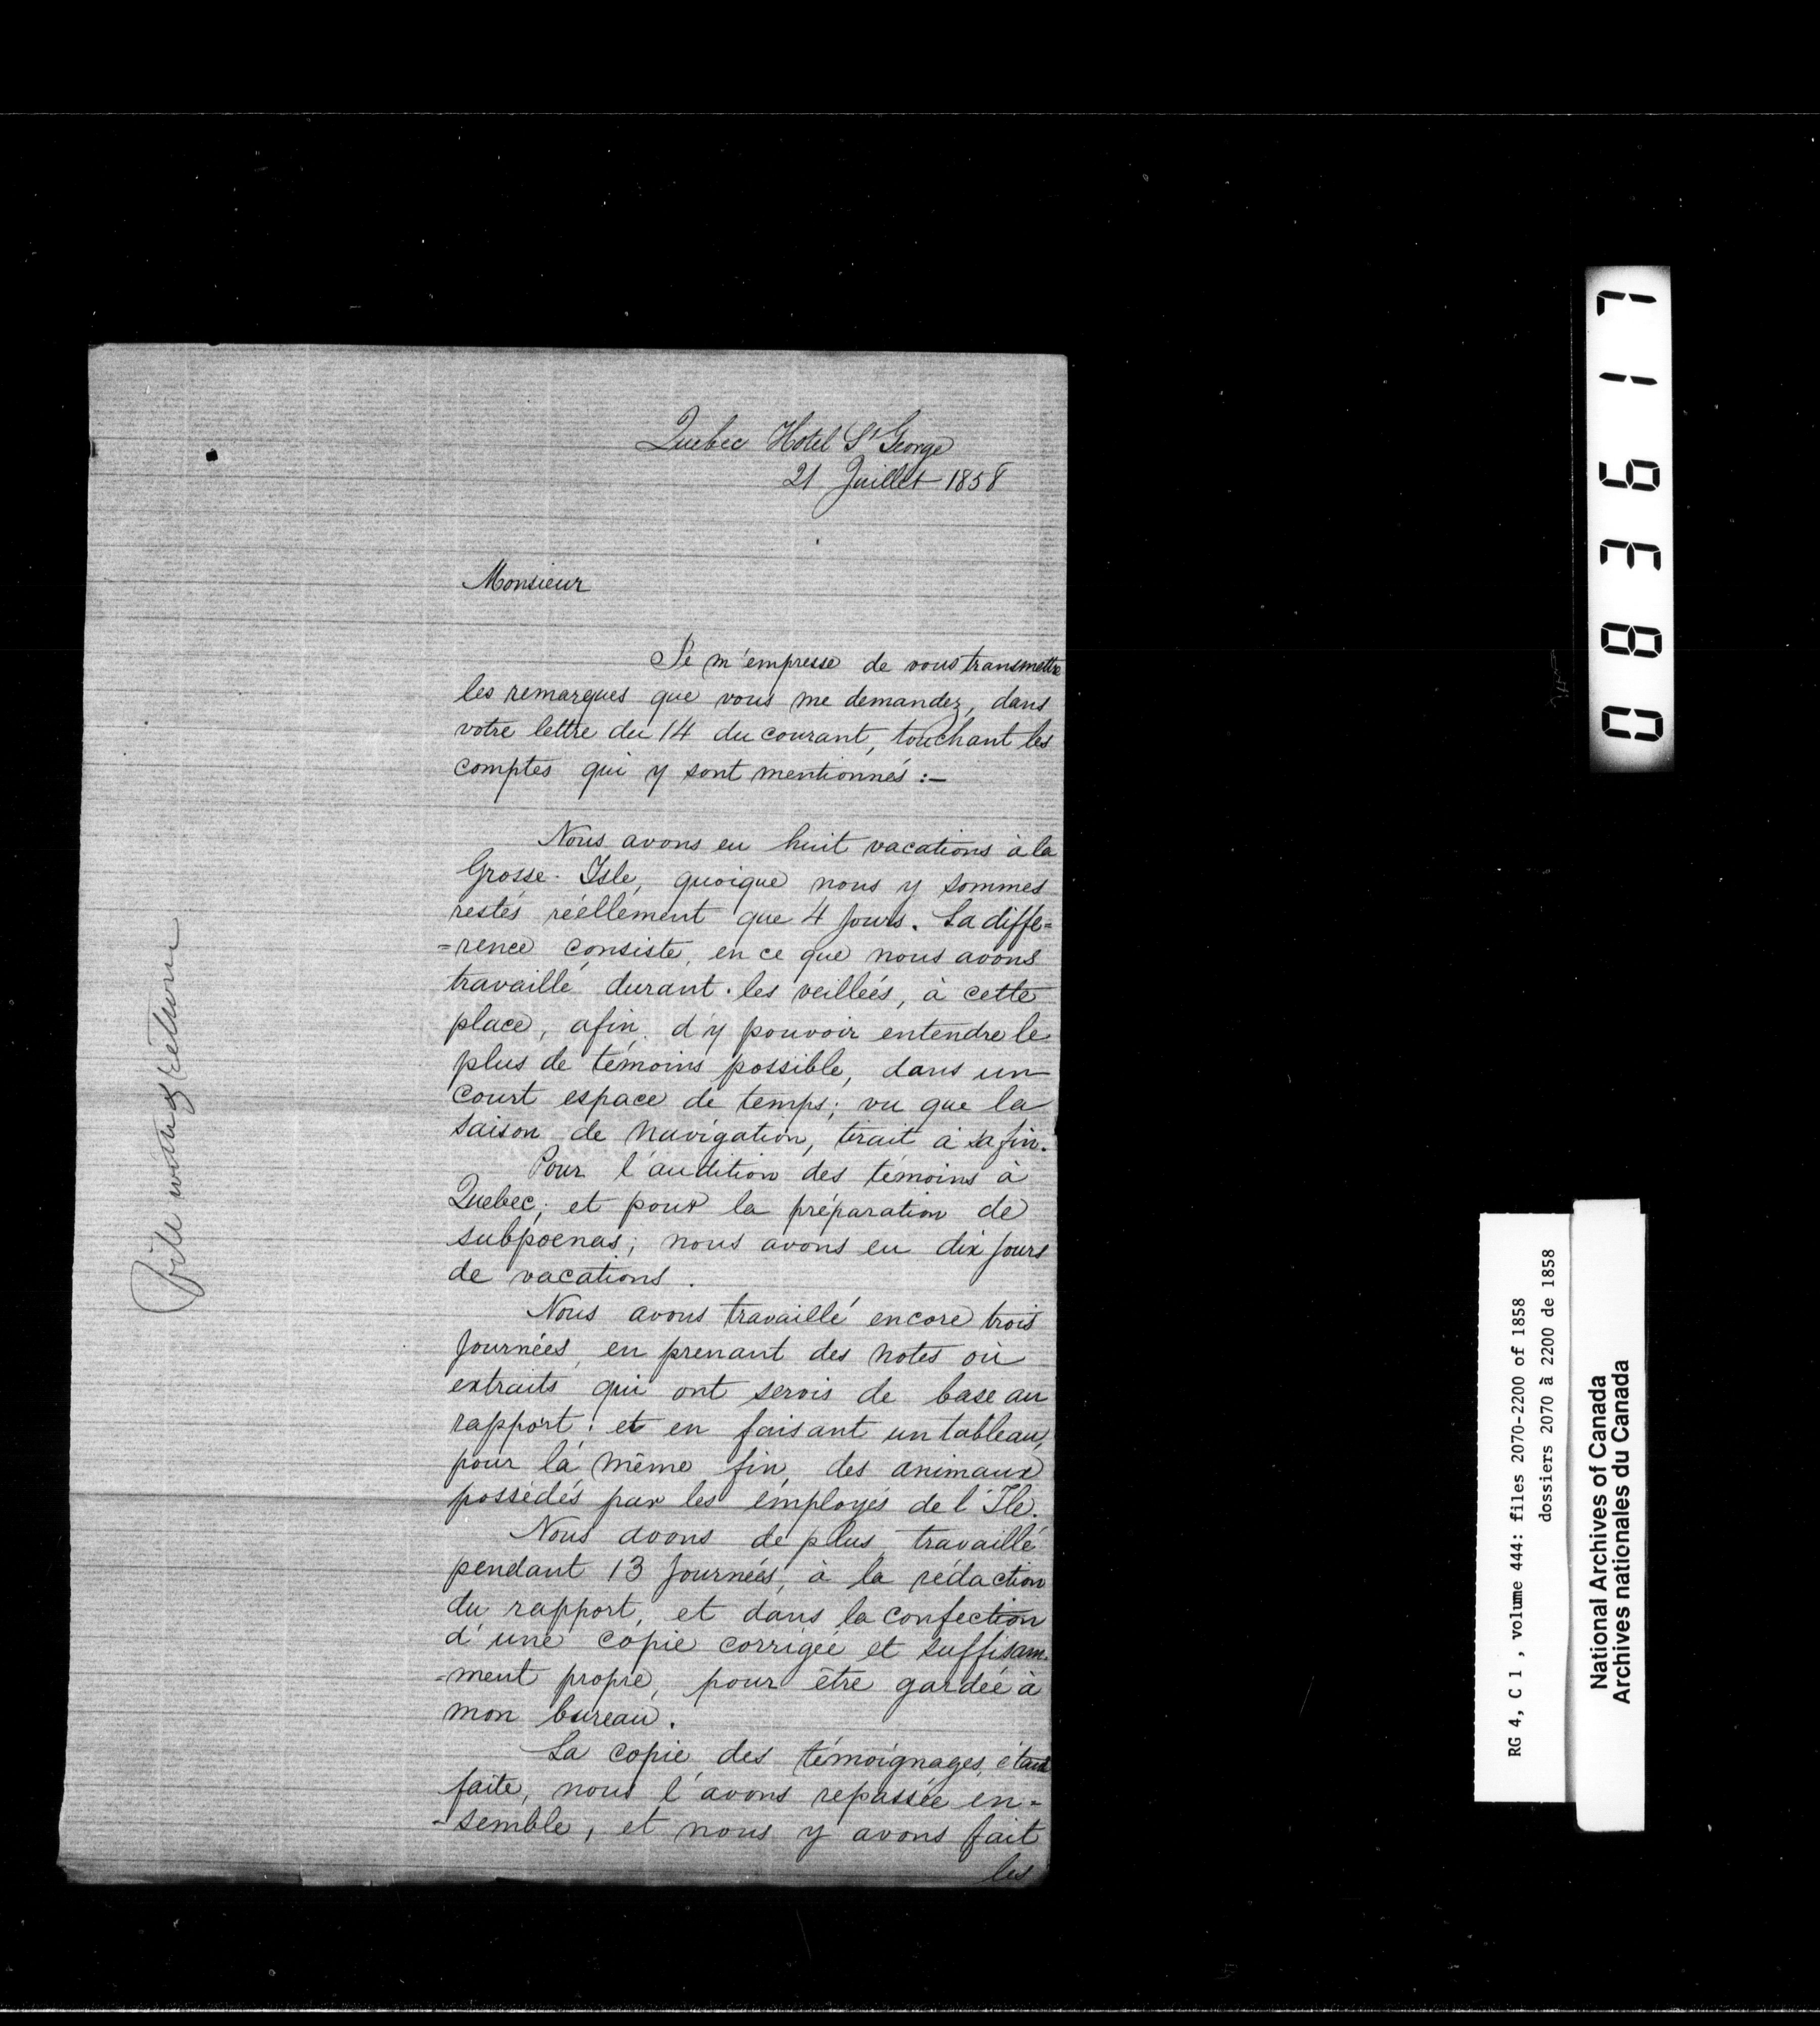 Quebec Hotel St George
21 Juillet 1858
Monsieur
Je m'empresse de vous transmettre
les remarques que vous me demandez, dans
votre lettre du 14 du courant, touchant les
comptes qui y sont mentionnés :-
Nous avons eu huit vacations à la
Grosse-Isle, quoique nous y sommes
restés réellement que 4 jours. La diffé=
=rence consiste, en ce que nous avons
travaillé durant les veillées, à cette
place, afin d'y pouvoir entendre le
plus de témoins possible, dans un
court espace de temps; vu que la
saison de navigation, tirait à sa fin.
Pour l'audition des témoins à
Quebec; et pour la préparation de
subpoenas; nous avons eu dix jours
de vacations.
Nous avons travaillé encore trois
journées, en prenant des notes où
extraits qui ont servis de base au
rapport; et en faisant un tableau,
pour la même fin, des animaux
possédés par les employés de l'Ile.
Nous avons de plus travaillé
pendant 13 journées, à la rédaction
du rapport, et dans la confection
d'une copie corrigée et suffisam-
=ment propre, pour être gardée à
mon bureau.
La copie des témoignages, étant
faite, nous l'avons repassée en=
-semble, et nous y avons fait
les
083617
RG 4, C 1 , volume 444: files 2070-2200 of 1858
dossiers 2070 à 2200 de 1858
National Archives of Canada
Archives nationales du Canada